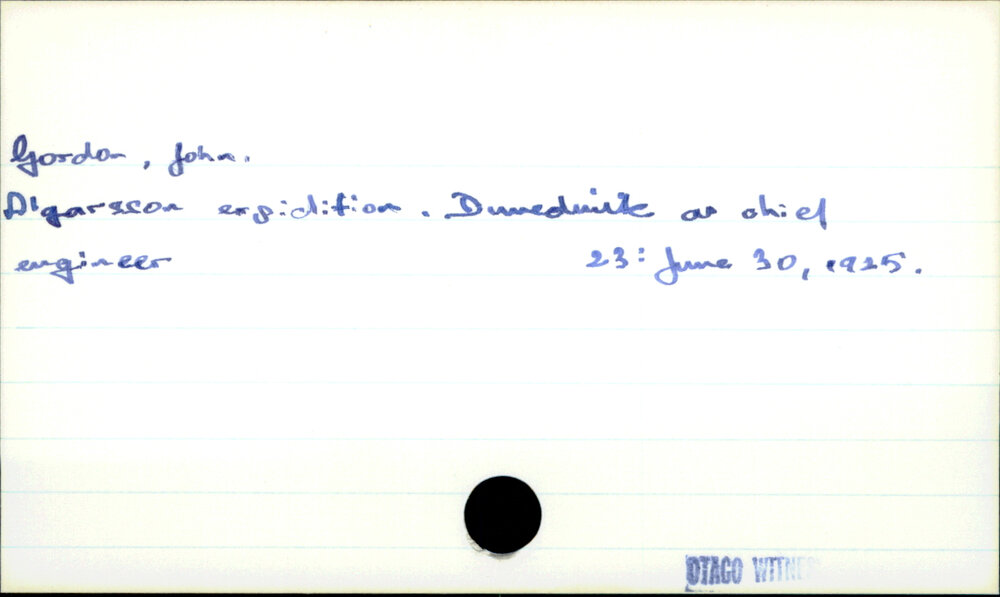 Gordon, John.
Algarsson expidition. Dunedinite as chief
engineer 23: June 30, 1925.
OTAGO WITNE